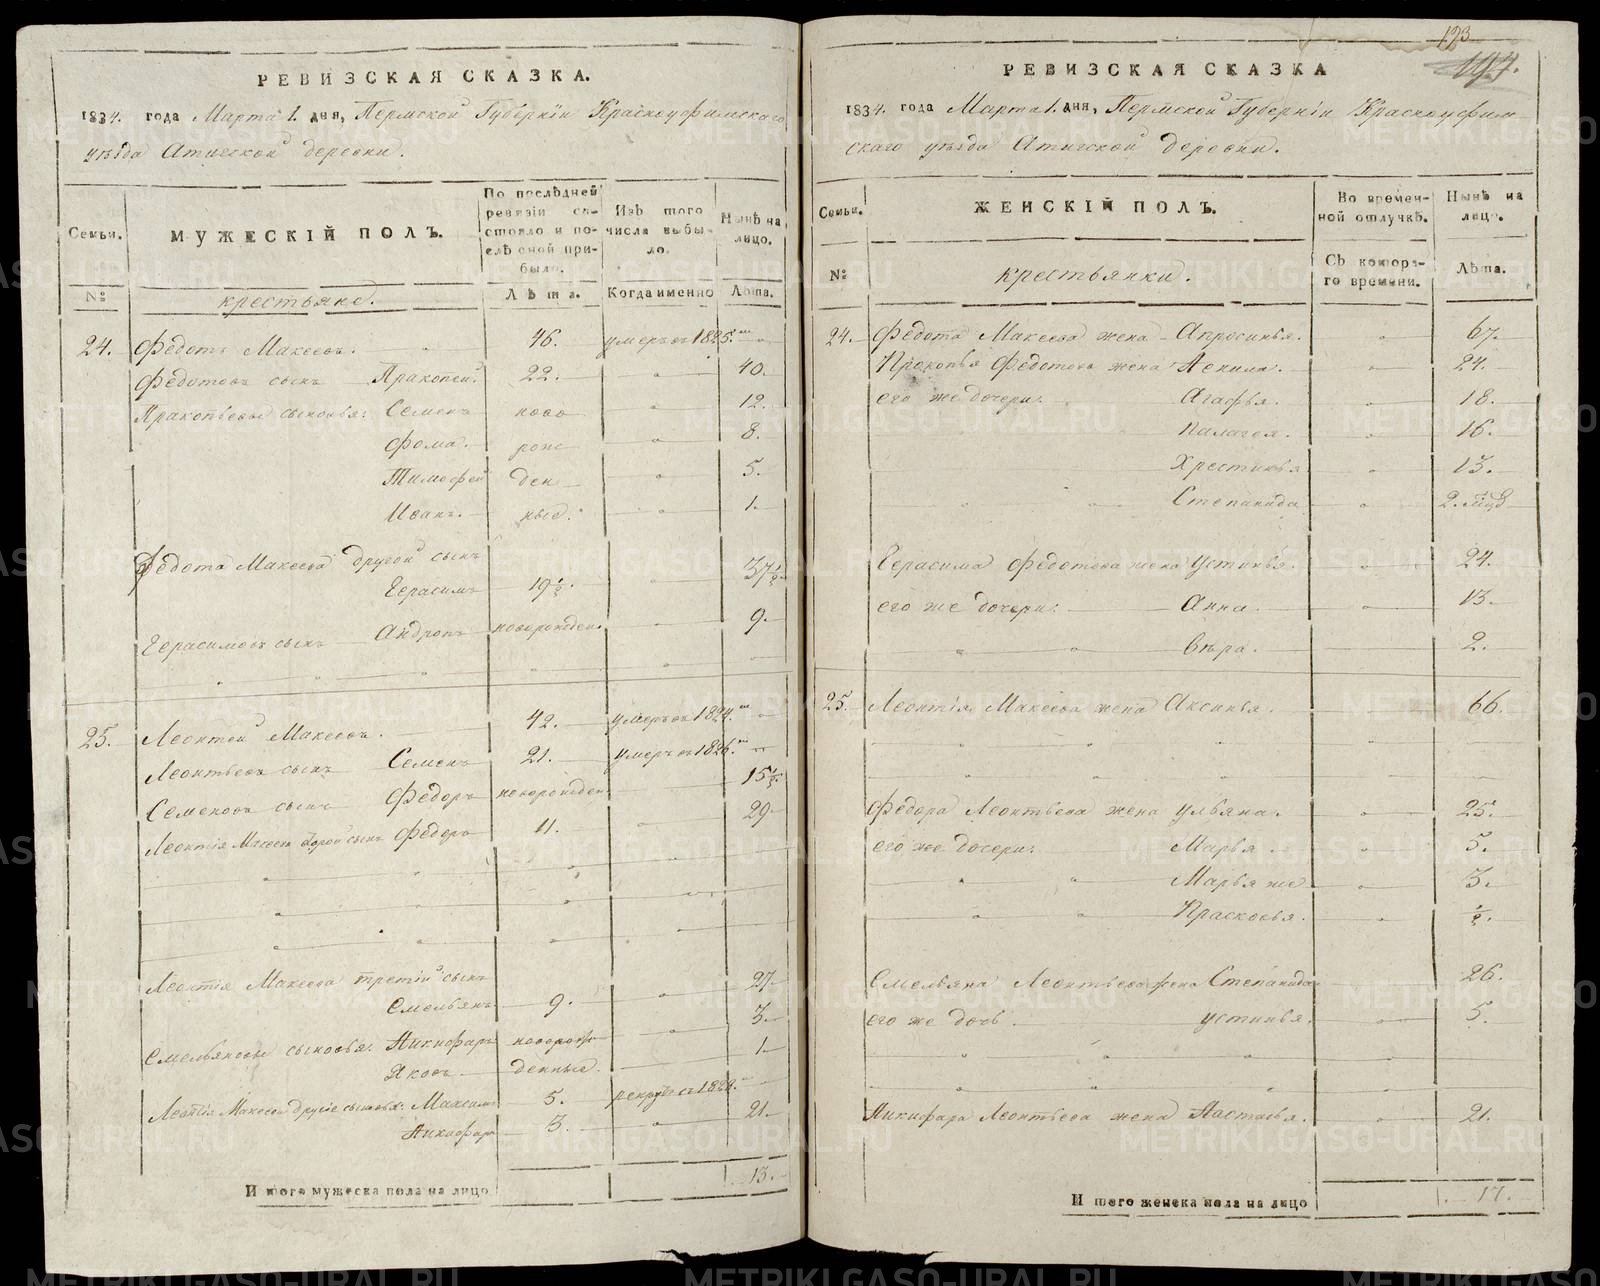 РЕВИЗСКАЯ СКАЗКА.
1834. года Марта 1. дня, Пермской Губерніи Красноуфимскаго
уѣзда Атигской деревни.
Семьи.
МУЖЕСКІЙ ПОЛЪ.
По послѣдней ревизіи состояло и послѣ оной прибыло.
Изъ того числа выбыло.
Нынѣ на лицо.
№
крестьяне.
Лѣта.
Когда именно
Лѣта.
24. Федотъ Макеевъ. 46. умеръ въ 1825.
Федотовъ сынъ Пракопей. 22. 40.
Пракопьевы сыновья: Семенъ ново 12.
Фома. рож 8.
Тимофей ден 5.
Иванъ. ные. 1.
Федота Макеева другой сынъ
Герасимъ 19½. 37½.
Герасимовъ сынъ Андронъ новорожден. 9.
25. Леонтей Макеевъ. 42. умеръ въ 1824.
Леонтьевъ сынъ Семенъ 21. умеръ въ 1826.
Семеновъ сынъ Федоръ новорожден. 15½.
Леонтія Макеева второй сынъ Федоръ 11. 29.
Леонтія Макеева третій сынъ 27.
Емельянъ 9.
Емельяновы сыновья: Никифаръ новорож 3.
Яковъ денные. 1.
Леонтія Макеева другіе сыновья: Максимъ 5. рекрутъ съ 1828.
Никифаръ 3. 21.
Итого мужеска пола на лицо 13.
123
РЕВИЗСКАЯ СКАЗКА
1834. года Марта 1. дня, Пермской Губерніи Красноуфим
скаго уѣзда Атигской деревни.
Семьи.
ЖЕНСКІЙ ПОЛЪ.
Во временной отлучкѣ.
Нынѣ на лицо.
№
крестьянки.
Съ котораго времени.
Лѣта.
24. Федота Макеева жена Апросинья. 67.
Прокопья Федотова жена Акилина. 24.
его же дочери: Агафья. 18.
Палагея. 16.
Хрестинья 13.
Степанида 2.
Герасима Федотова жена Устинья. 24.
его же дочери: Анна. 13.
Вѣра. 2.
25. Леонтія Макеева жена Аксинья. 66.
Федора Леонтьева жена Ульяна. 25.
его же дочери: Марья. 5.
Марья же 3.
Прасковья. ½.
Емельяна Леонтьева жена Степанида 26.
его же дочь Устинья. 5.
Никифара Леонтьева жена Настасья. 21.
Итого женска пола на лицо 17.
METRIKI.GASO-URAL.RU